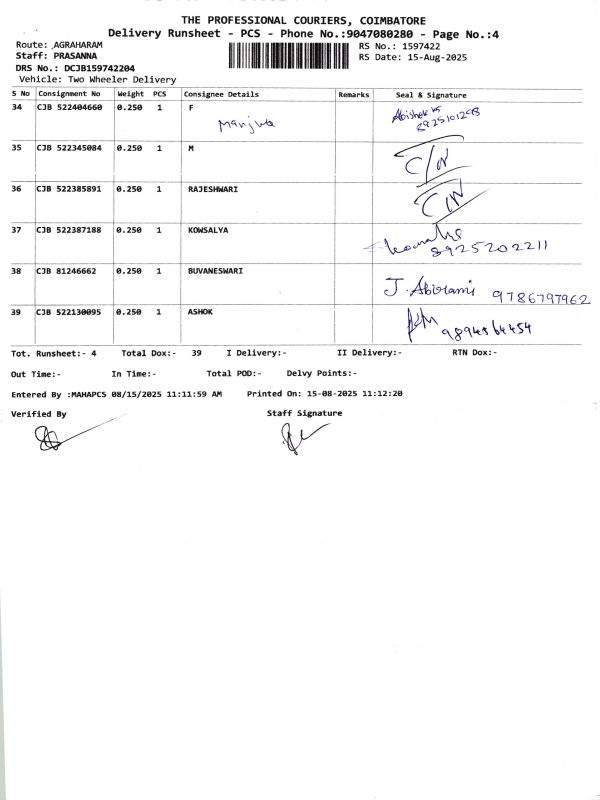 THE PROFESSIONAL COURIERS, COIMBATORE
Delivery Runsheet - PCS - Phone No.:9047080280 - Page No.:4
Route: AGRAHARAM
RS No.: 1597422
Staff: PRASANNA
RS Date: 15-Aug-2025
DRS No.: DCJB159742204
Vehicle: Two Wheeler Delivery
S No Consignment No Weight PCS Consignee Details Remarks Seal & Signature
34 CJB 522404660 0.250 1 F
Manjula
Abishek
8925101298
35 CJB 522345084 0.250 1 M C/N
36 CJB 522385891 0.250 1 RAJESHWARI C/N
37 CJB 522387188 0.250 1 KOWSALYA
8925202211
38 CJB 81246662 0.250 1 BUVANESWARI
J. Abirami 9786797962
39 CJB 522130095 0.250 1 ASHOK
9894564454
Tot. Runsheet:- 4 Total Dox:- 39 I Delivery:- II Delivery:- RTN Dox:-
Out Time:- In Time:- Total POD:- Delvy Points:-
Entered By :MAHAPCS 08/15/2025 11:11:59 AM Printed On: 15-08-2025 11:12:20
Verified By Staff Signature